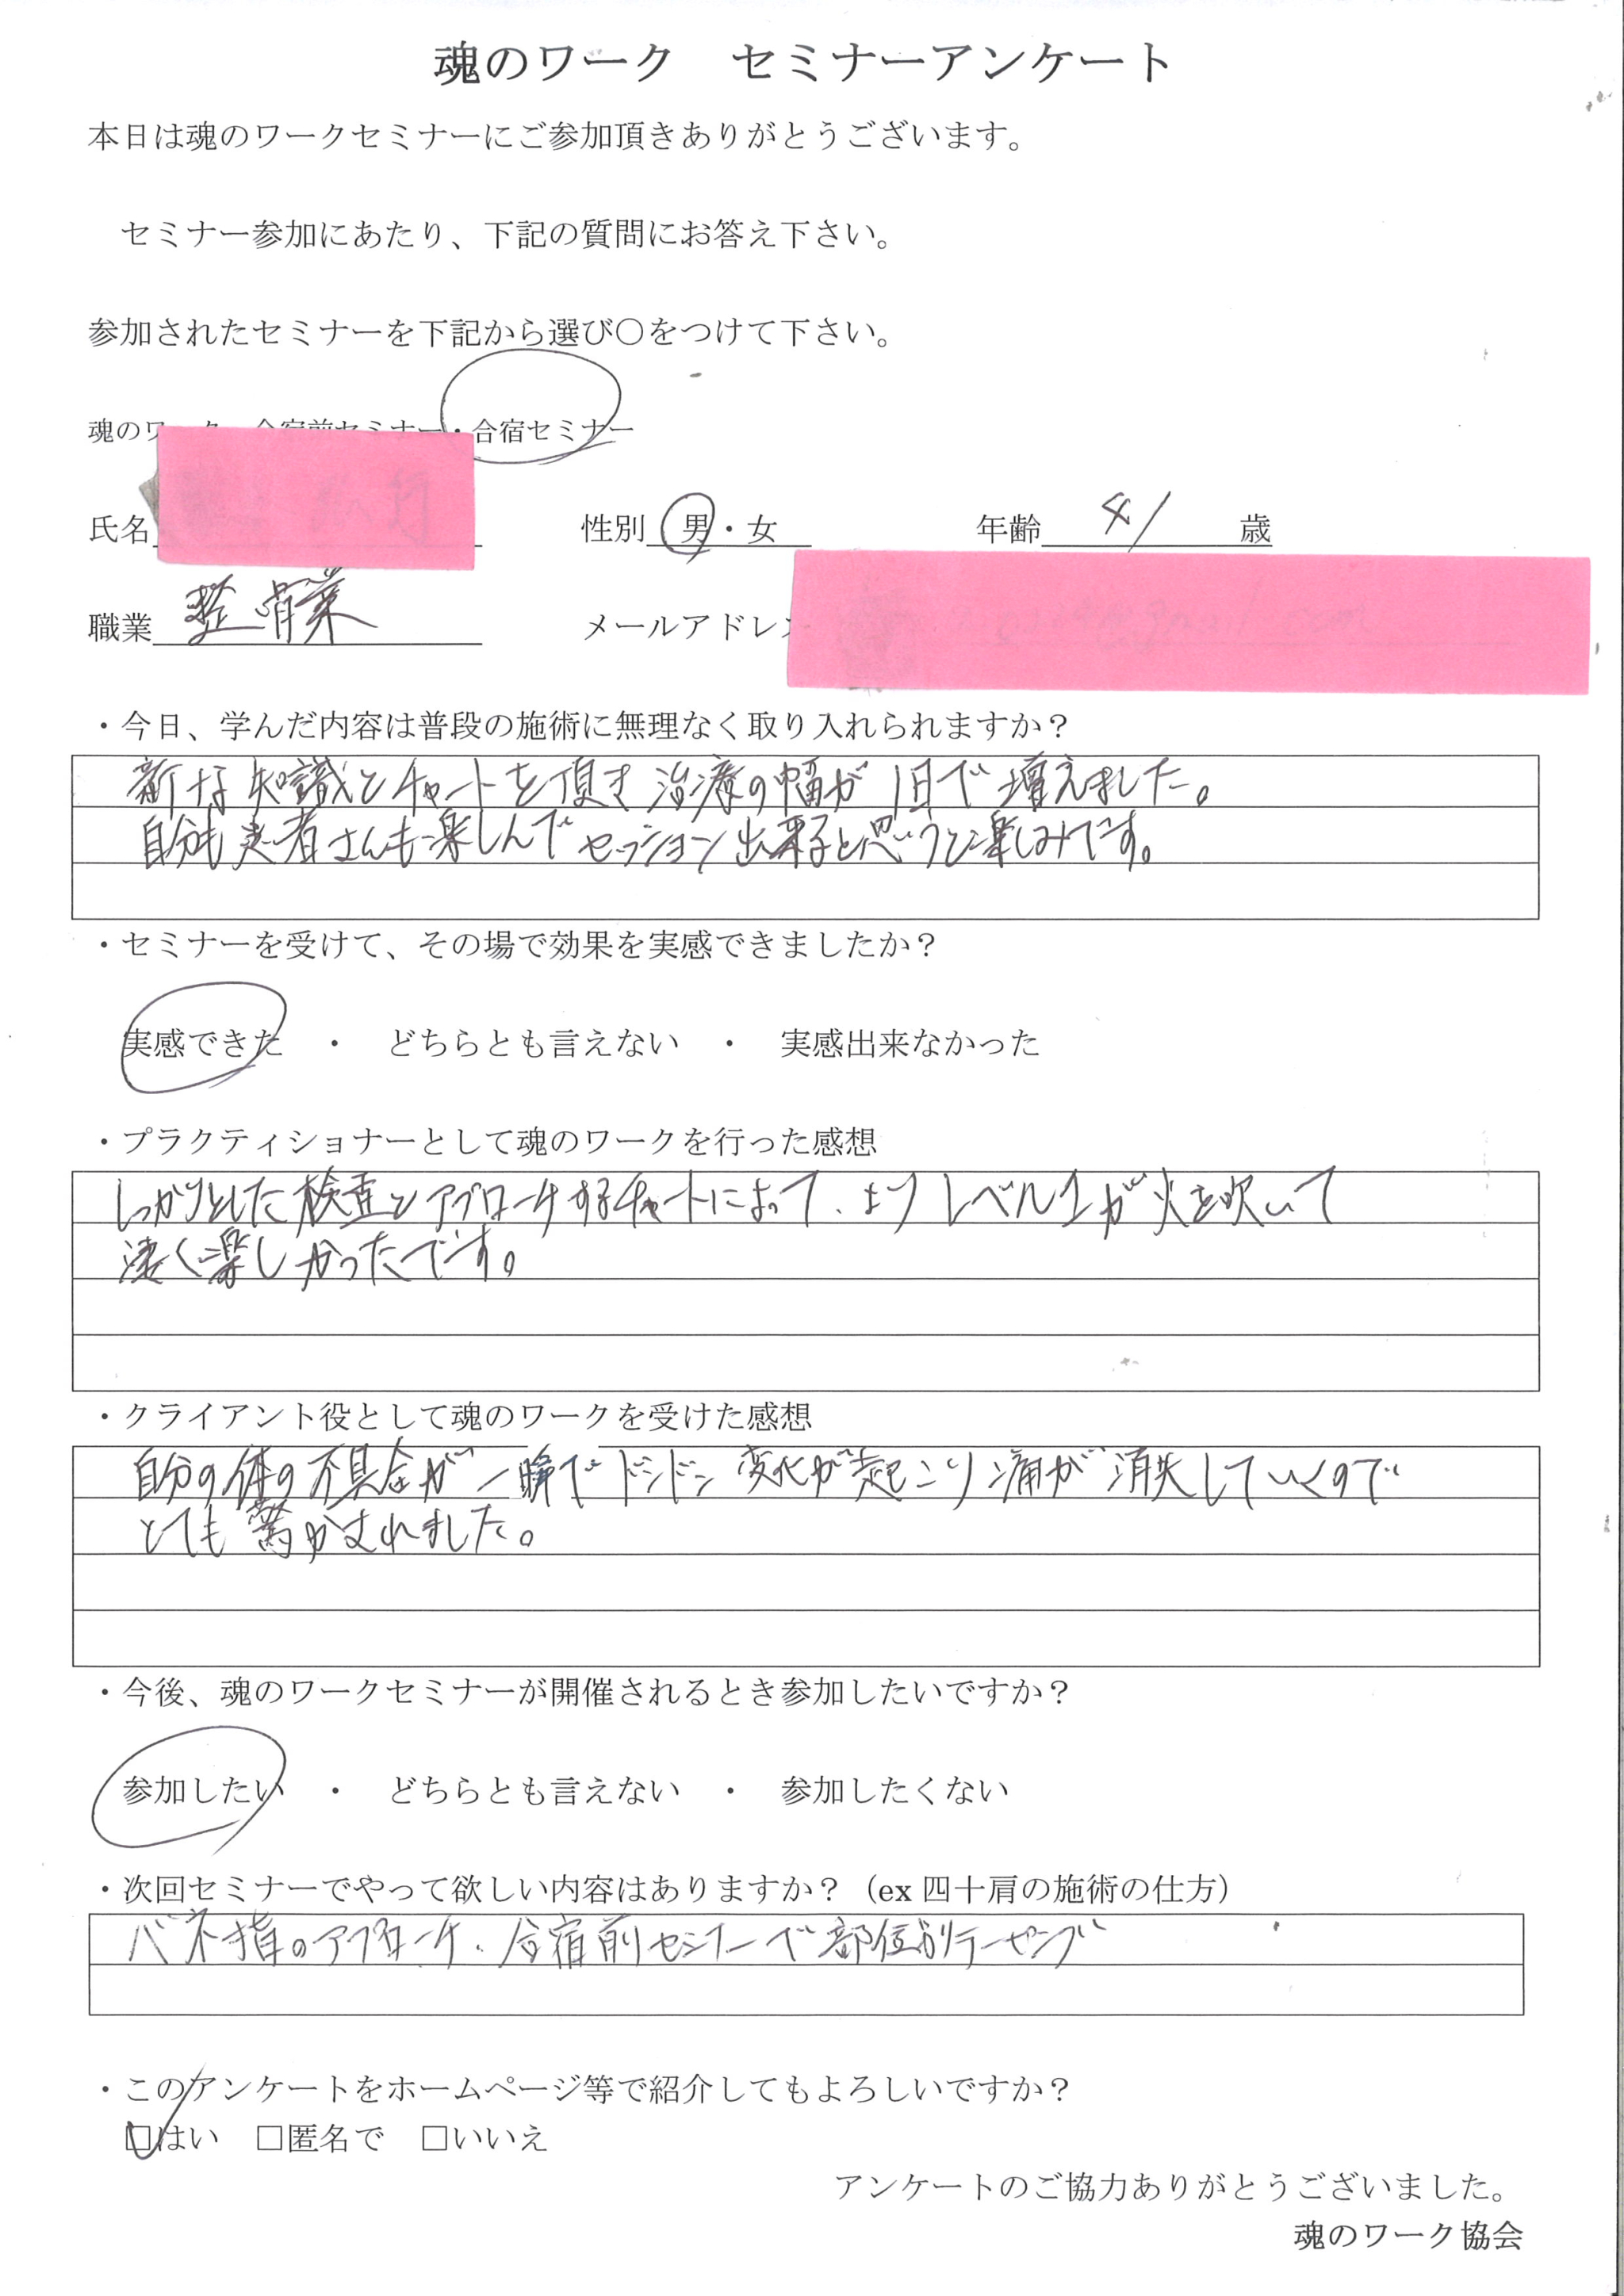 魂のワーク　セミナーアンケート
本日は魂のワークセミナーにご参加頂きありがとうございます。
セミナー参加にあたり、下記の質問にお答え下さい。
参加されたセミナーを下記から選び〇をつけて下さい。
魂のワーク　合宿前セミナー・合宿セミナー
氏名　性別　男・女　年齢　41　歳
職業　整骨業　メールアドレス
・今日、学んだ内容は普段の施術に無理なく取り入れられますか？
新たな知識とチャートを頂き治療の幅が1日で増えました。
自分も患者さんも楽しんでセッション出来ると思うと楽しみです。
・セミナーを受けて、その場で効果を実感できましたか？
実感できた　・　どちらとも言えない　・　実感出来なかった
・プラクティショナーとして魂のワークを行った感想
しっかりとした検査とアプローチするチャートによって、よりレベル1が火を吹いて
凄く楽しかったです。
・クライアント役として魂のワークを受けた感想
自分の体の不具合が一瞬でドンドン変化が起こり痛が消失していくので
とても驚かされました。
・今後、魂のワークセミナーが開催されるとき参加したいですか？
参加したい　・　どちらとも言えない　・　参加したくない
・次回セミナーでやって欲しい内容はありますか？（ex 四十肩の施術の仕方）
バネ指のアプローチ、合宿前セミナーで部位別テーピング
・このアンケートをホームページ等で紹介してもよろしいですか？
□はい　□匿名で　□いいえ
アンケートのご協力ありがとうございました。
魂のワーク協会